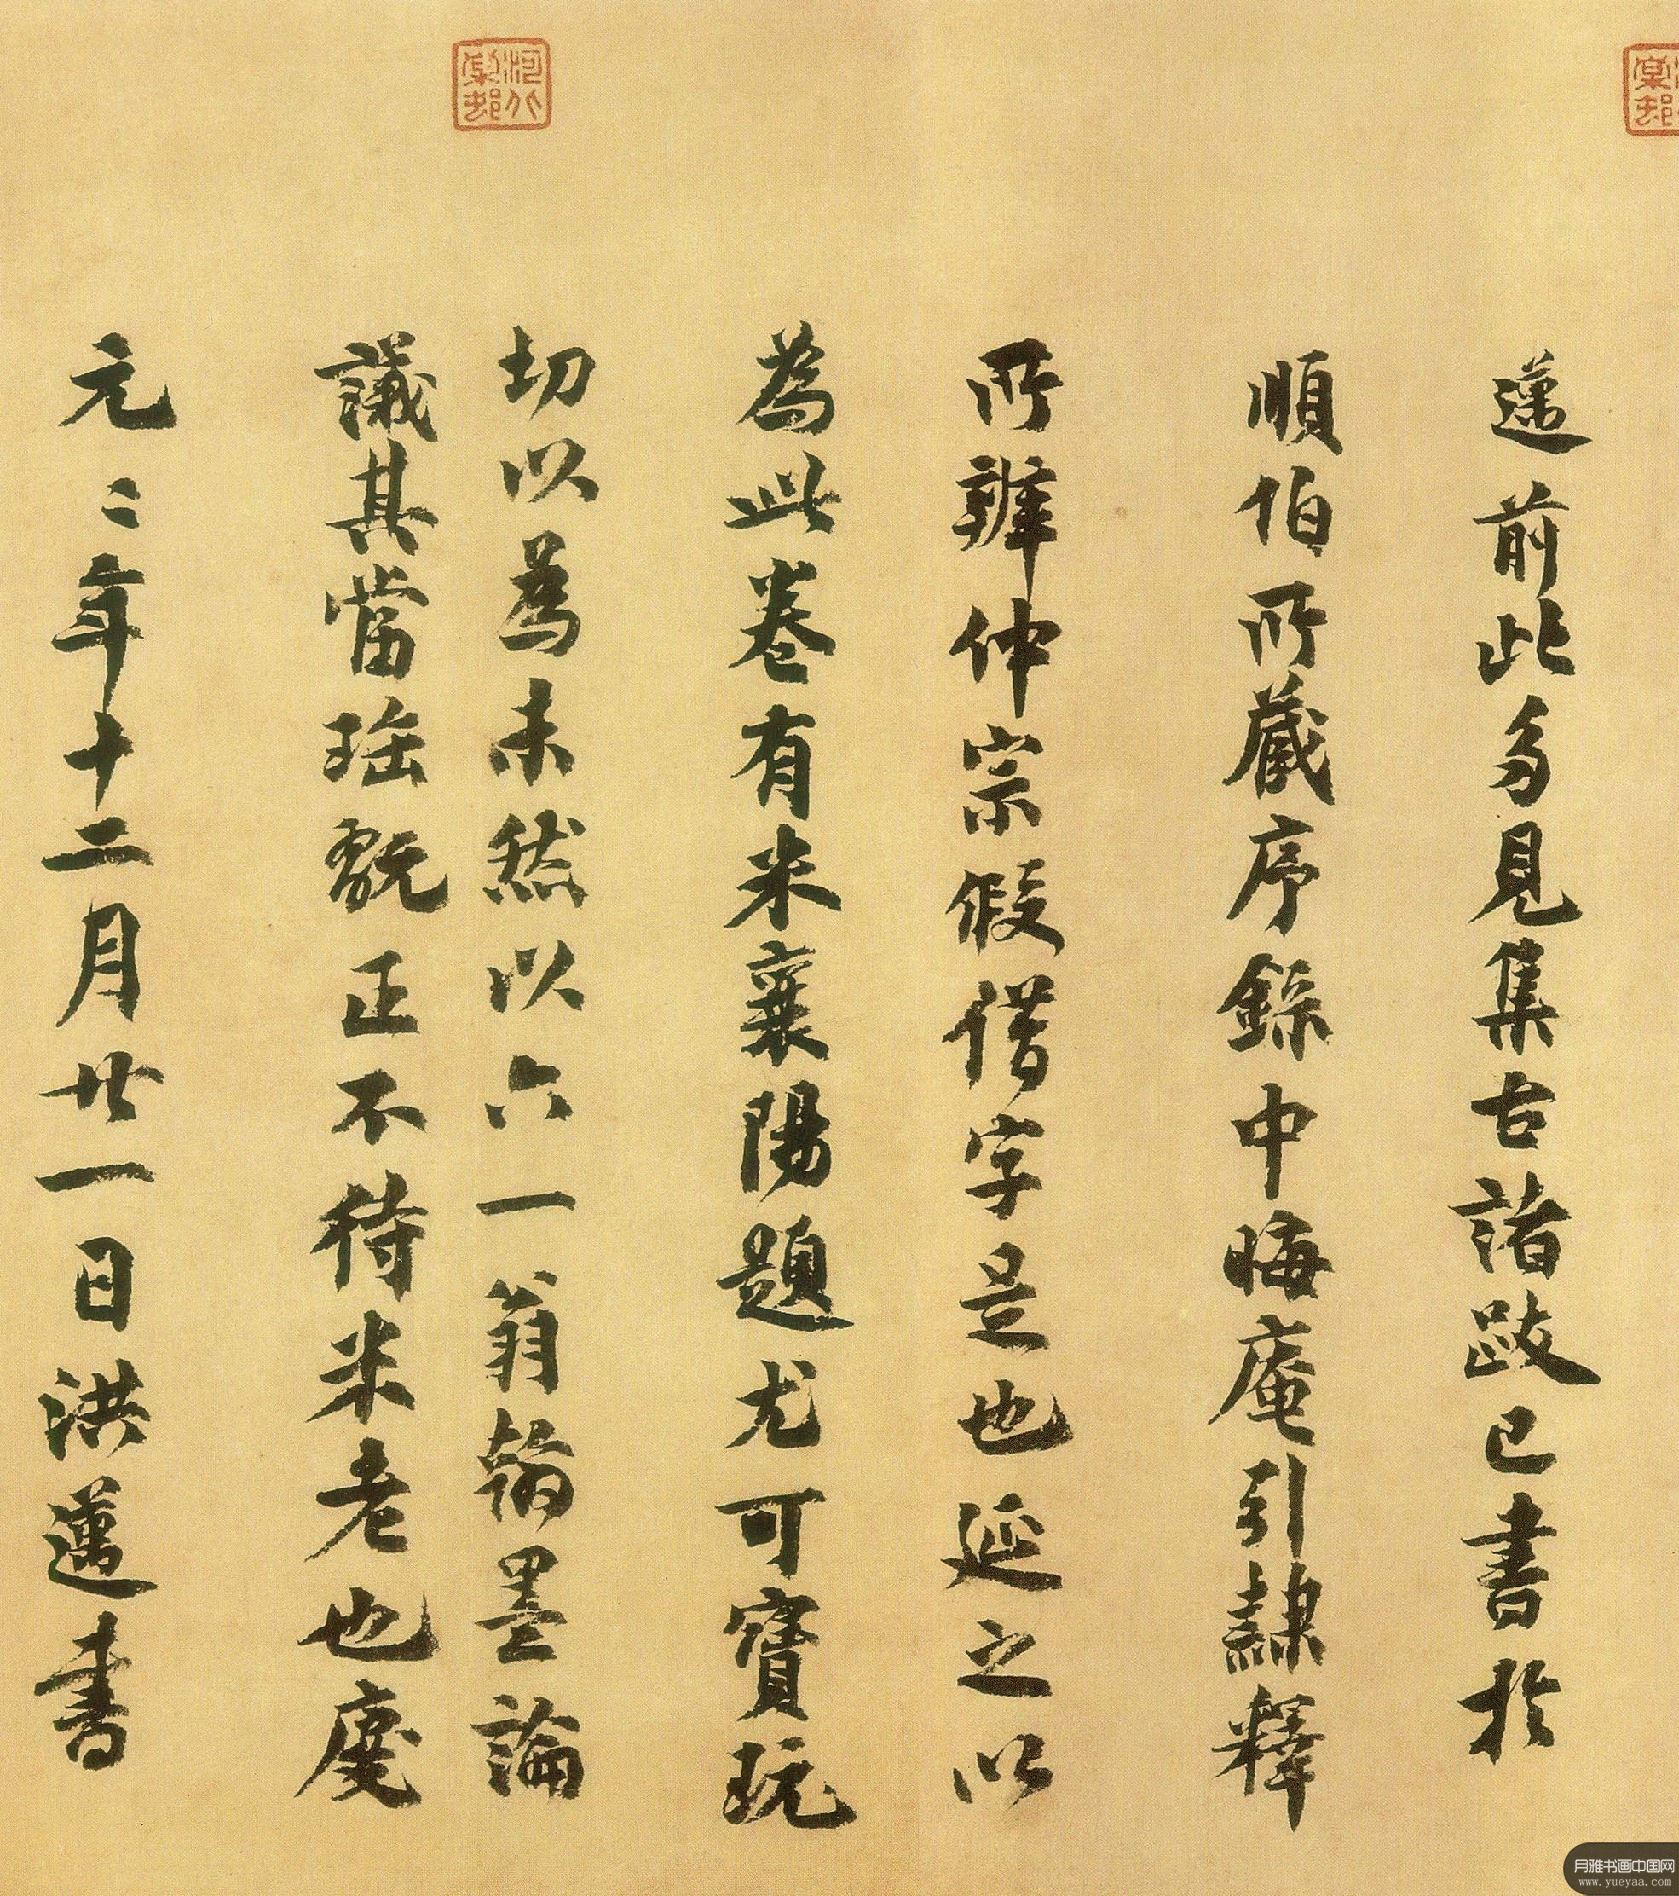 邁前此多見集古諸跋已書於
順伯所藏序錄中晦庵引隸釋
所辨仲宗假借字是也延之以
為此卷有米襄陽題尤可寶玩
切以為未然以六一翁翰墨論
議其當珤翫正不待米老也慶
元二年十二月廿一日洪邁書
月雅书画中国网
www.yueyaa.com